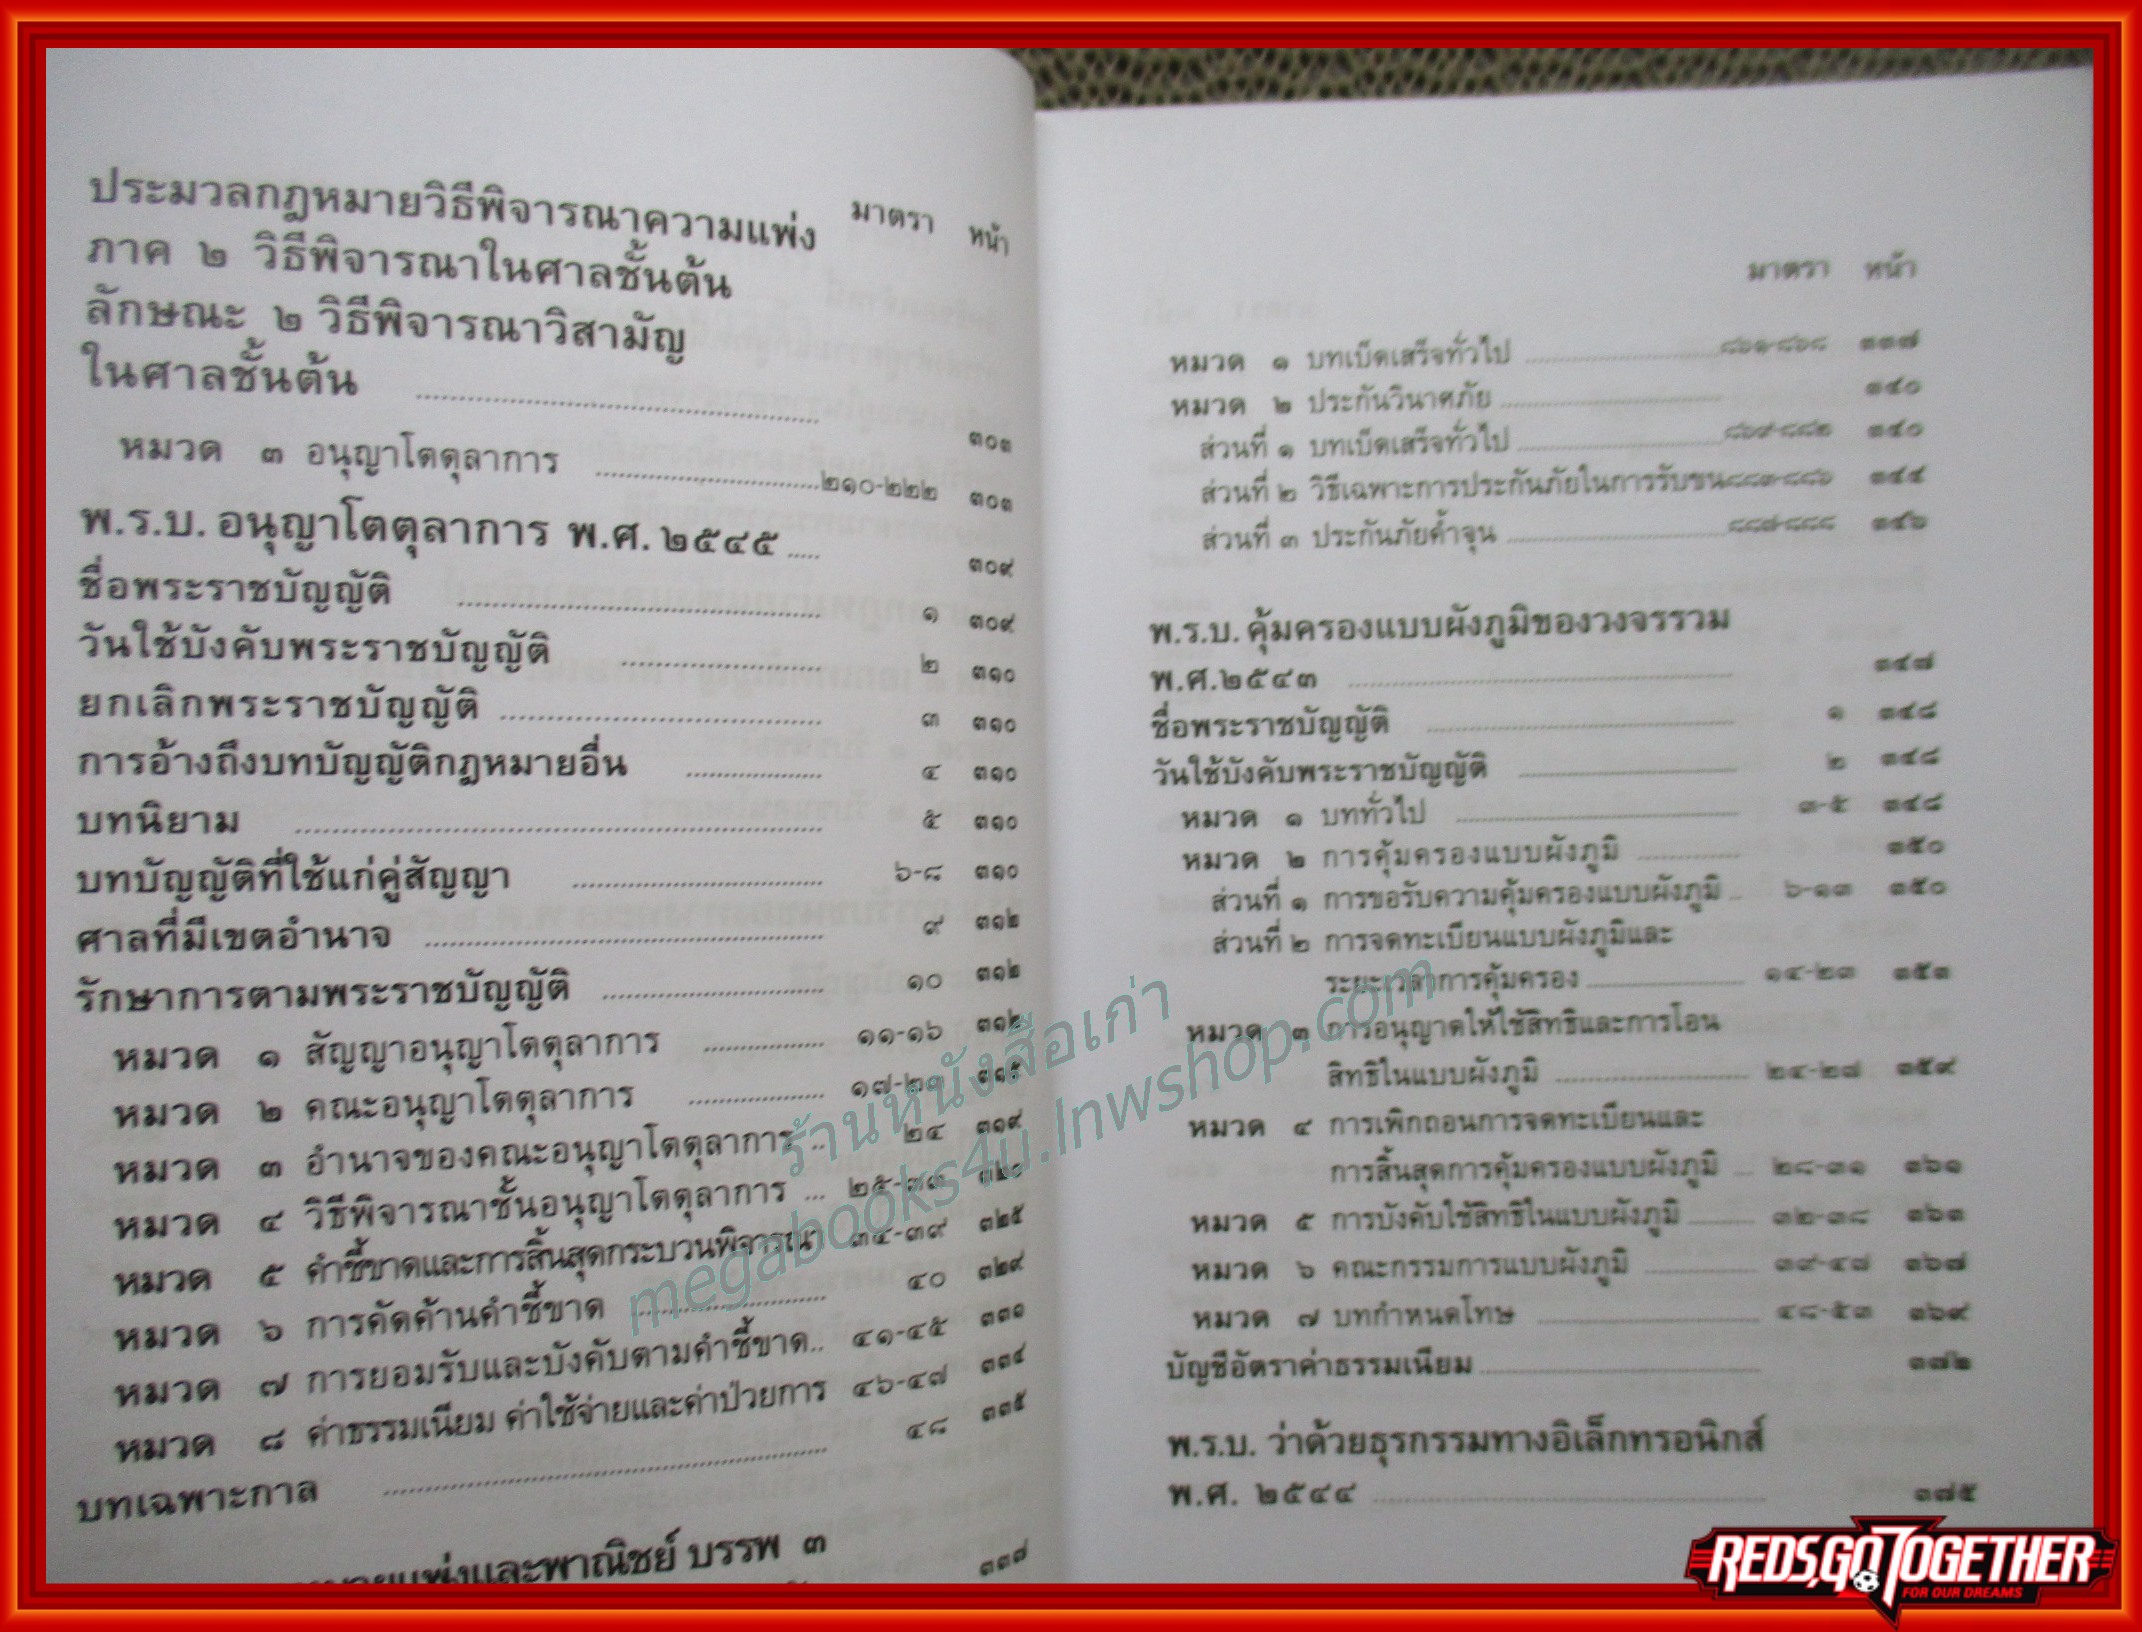 มาตรา หน้า
ประมวลกฎหมายวิธีพิจารณาความแพ่ง
ภาค ๒ วิธีพิจารณาในศาลชั้นต้น
ลักษณะ ๒ วิธีพิจารณาวิสามัญ
ในศาลชั้นต้น ๓๐๓
หมวด ๓ อนุญาโตตุลาการ ๒๑๐-๒๒๒ ๓๐๓
พ.ร.บ. อนุญาโตตุลาการ พ.ศ. ๒๕๔๕ ๓๐๙
ชื่อพระราชบัญญัติ ๑ ๓๐๙
วันใช้บังคับพระราชบัญญัติ ๒ ๓๑๐
ยกเลิกพระราชบัญญัติ ๓ ๓๑๐
การอ้างถึงบทบัญญัติกฎหมายอื่น ๔ ๓๑๐
บทนิยาม ๕ ๓๑๐
บทบัญญัติที่ใช้แก่คู่สัญญา ๖-๘ ๓๑๐
ศาลที่มีเขตอำนาจ ๙ ๓๑๒
รักษาการตามพระราชบัญญัติ ๑๐ ๓๑๒
หมวด ๑ สัญญาอนุญาโตตุลาการ ๑๑-๑๖ ๓๑๒
หมวด ๒ คณะอนุญาโตตุลาการ ๑๗-๒๓ ๓๑๕
หมวด ๓ อำนาจของคณะอนุญาโตตุลาการ ๒๔ ๓๑๙
หมวด ๔ วิธีพิจารณาชั้นอนุญาโตตุลาการ ๒๕-๓๓ ๓๒๐
หมวด ๕ คำชี้ขาดและการสิ้นสุดกระบวนพิจารณา ๓๔-๓๙ ๓๒๕
หมวด ๖ การคัดค้านคำชี้ขาด ๔๐ ๓๒๙
หมวด ๗ การยอมรับและบังคับตามคำชี้ขาด ๔๑-๔๕ ๓๓๑
หมวด ๘ ค่าธรรมเนียม ค่าใช้จ่ายและค่าป่วยการ ๔๖-๔๗ ๓๓๔
บทเฉพาะกาล ๔๘ ๓๓๕
แพ่งและพาณิชย์ บรรพ ๓ ๓๓๗
มาตรา หน้า
หมวด ๑ บทเบ็ดเสร็จทั่วไป ๘๖๑-๘๖๘ ๓๓๗
หมวด ๒ ประกันวินาศภัย ๓๔๐
ส่วนที่ ๑ บทเบ็ดเสร็จทั่วไป ๘๖๙-๘๘๒ ๓๔๐
ส่วนที่ ๒ วิธีเฉพาะการประกันภัยในการรับขน ๘๘๓-๘๘๖ ๓๔๔
ส่วนที่ ๓ ประกันภัยค้ำจุน ๘๘๗-๘๘๘ ๓๔๖
พ.ร.บ. คุ้มครองแบบผังภูมิของวงจรรวม
พ.ศ.๒๕๔๓ ๓๔๗
ชื่อพระราชบัญญัติ ๑ ๓๔๘
วันใช้บังคับพระราชบัญญัติ ๒ ๓๔๘
หมวด ๑ บททั่วไป ๓-๕ ๓๔๘
หมวด ๒ การคุ้มครองแบบผังภูมิ ๓๕๐
ส่วนที่ ๑ การขอรับความคุ้มครองแบบผังภูมิ ๖-๑๓ ๓๕๐
ส่วนที่ ๒ การจดทะเบียนแบบผังภูมิและ
ระยะเวลาการคุ้มครอง ๑๔-๒๓ ๓๕๓
หมวด ๓ การอนุญาตให้ใช้สิทธิและการโอน
สิทธิในแบบผังภูมิ ๒๔-๒๗ ๓๕๙
หมวด ๔ การเพิกถอนการจดทะเบียนและ
การสิ้นสุดการคุ้มครองแบบผังภูมิ ๒๘-๓๑ ๓๖๑
หมวด ๕ การบังคับใช้สิทธิในแบบผังภูมิ ๓๒-๓๘ ๓๖๓
หมวด ๖ คณะกรรมการแบบผังภูมิ ๓๙-๔๗ ๓๖๗
หมวด ๗ บทกำหนดโทษ ๔๘-๕๓ ๓๖๙
บัญชีอัตราค่าธรรมเนียม ๓๗๒
พ.ร.บ. ว่าด้วยธุรกรรมทางอิเล็กทรอนิกส์
พ.ศ. ๒๕๔๔ ๓๗๕
ร้านหนังสือเก่า
megabooks4u.lnwshop.com
REDS,GO TOGETHER
FOR OUR DREAMS